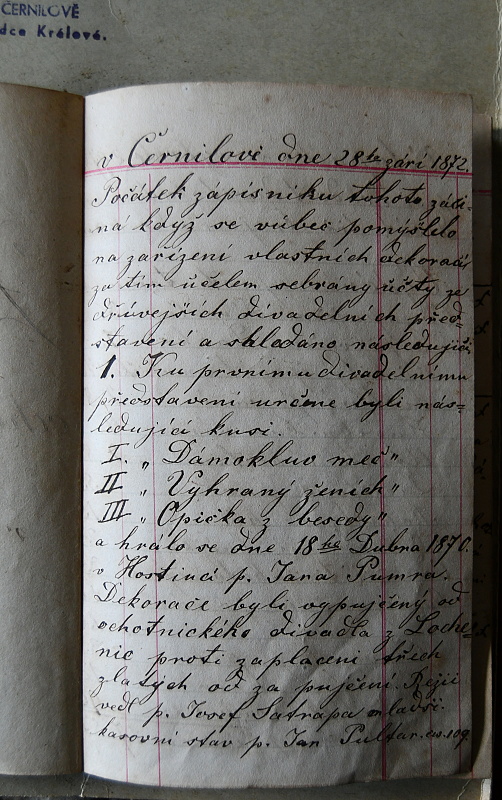 ČERNILOVĚ
dce Králové.
v Černilově dne 28ho září 1872.
Počátek zápisníku tohoto začí-
ná když se vůbec pomýšlelo
na zařízení vlastních dekorací
za tím účelem sebrány účty ze
dřívejších divadelních před-
stavení a shledáno následující
1. Ku prvnímu divadelnímu
představení určené byli nás=
ledující kusi.
I. „Dámokluv meč"
II „Vyhraný ženich"
III „Opička z besedy"
a hrálo se dne 18ho Dubna 1870.
v Hostinci p. Jana Pumra.
Dekorače byli vypujčený od
ochotnického divadla z Loche=
nic proti zaplacení třech
zlatých od za pujčení. Rejii
vedl p. Josef Satrapa mladší.
kasovní stav p. Jan Pultar. čís. 109.